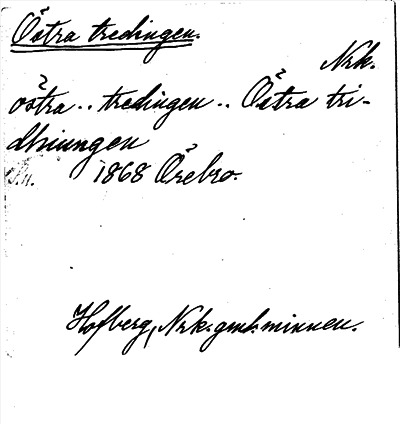 Östra tredingen.
Nrk.
östra .. tredingen .. Östra tri-
dhiungen
1868 Örebro.
Hofberg, Nrk. gml. minnen.